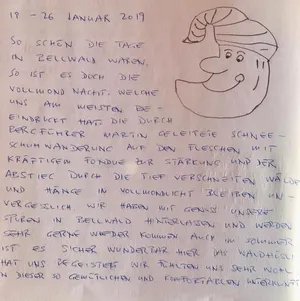 19 - 26 JANUAR 2019
SO SCHÖN DIE TAGE
IN BELLWALD WAREN,
SO IST ES DOCH DIE
VOLLMOND NACHT, WELCHE
UNS AM MEISTEN BE-
EINDRUCKT HAT. DIE DURCH
BERGFÜHRER MARTIN GELEITETE SCHNEE-
SCHUHWANDERUNG AUF DEN FLESCHEN MIT
KRÄFTIGEM FONDUE ZUR STÄRKUNG UND DER
ABSTIEG DURCH DIE TIEF VERSCHNEITEN WÄLDE
UND HÄNGE IN VOLLMONDLICHT BLEIBEN UN-
VERGESSLICH. WIR HABEN MIT GENUSS UNSERE
SPUREN IN BELLWALD HINTERLASSEN UND WERDEN
SEHR GERNE WIEDER KOMMEN AUCH IM SOMMER
IST ES SICHER WUNDERBAR HIER. DAS WALDHÜSLI
HAT UNS BEGEISTERT WIR FÜHLTEN UNS SEHR WOHL
IN DIESER SO GEMÜTLICHEN UND KOMFORTABLEN UNTERKUNFT